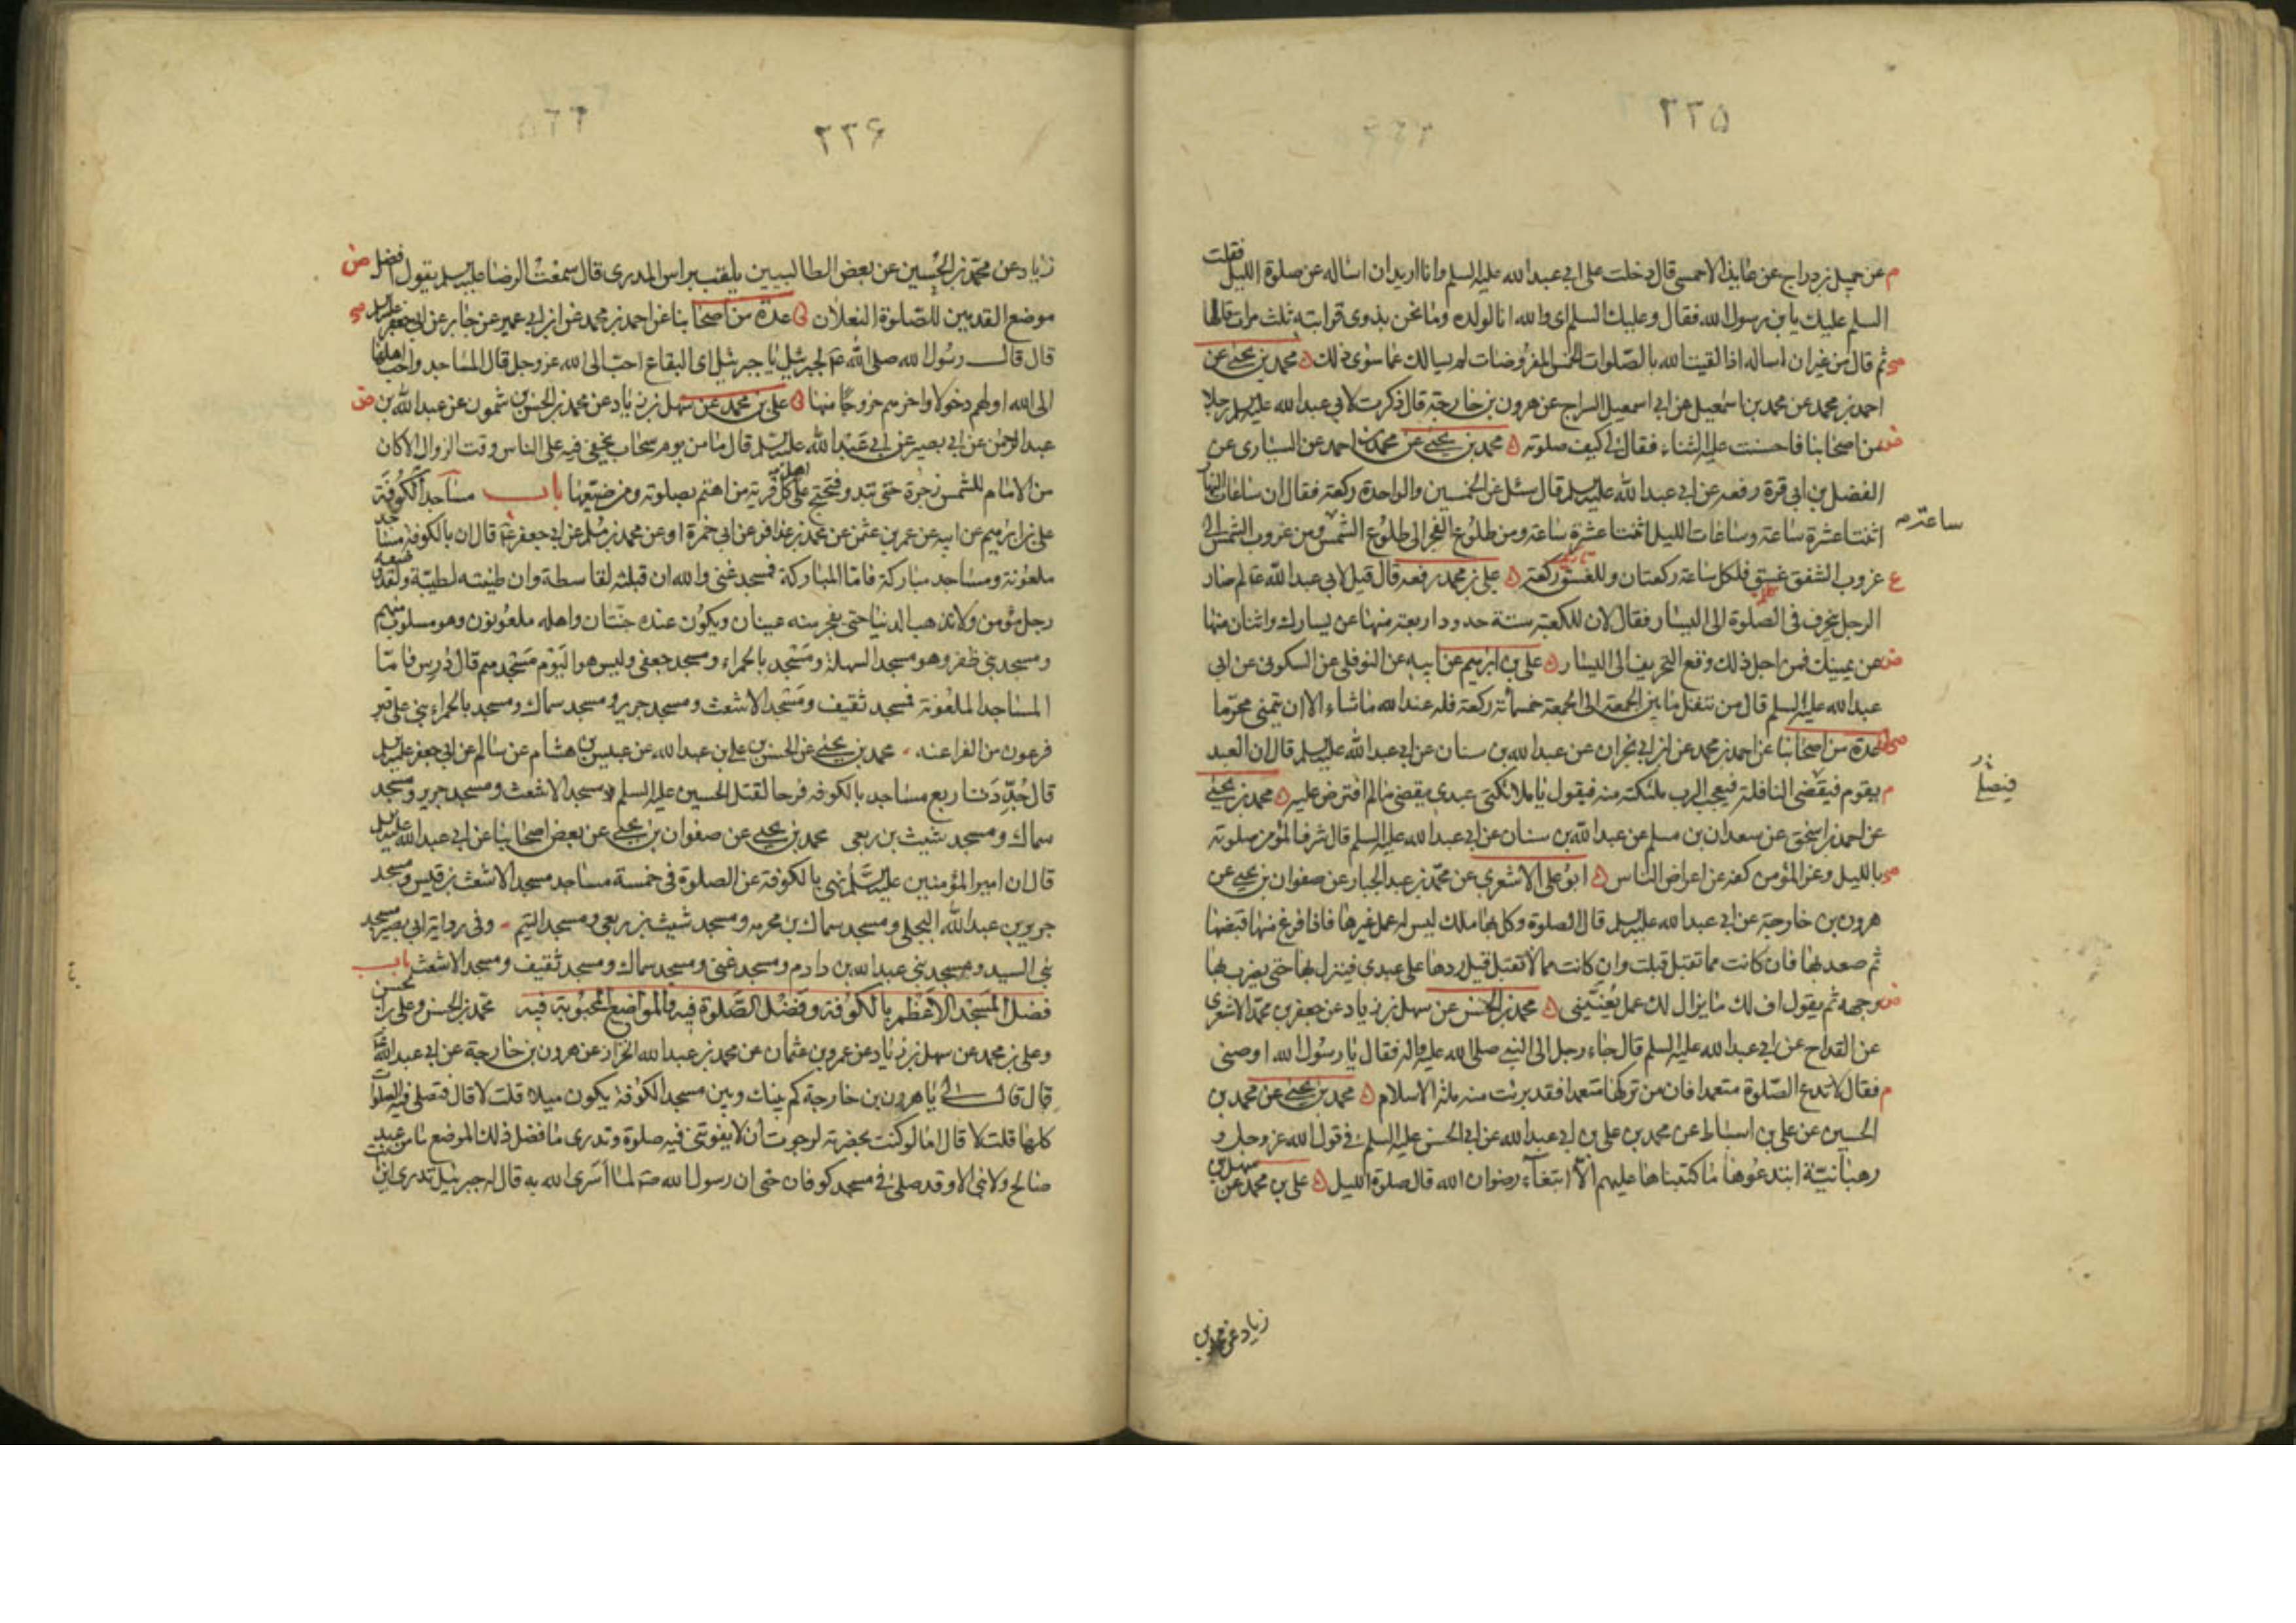 ٢٢۵
م عن جميل بن دراج عن عايذ الاحمسى قال دخلت على ابى عبد الله عليه السلم وانا اريد ان اساله عن صلوة الليل فقلت
السلم عليك يا بن رسول الله فقال وعليك السلم اى والله انا لولده وما نحن بذوى قرابته ثلث مرات قالها
ثم قال من غير ان اساله اذا لقيت الله بالصلوات الخمس المفروضات لم يسالك عما سوى ذلك محمد بن يحيى عن
احمد بن محمد عن محمد بن اسمعيل عن ابى اسمعيل السراج عن هرون بن خارجة قال ذكرت لابى عبد الله عليه السلم رجلا
من اصحابنا فاحسنت عليه الثناء فقال لى كيف صلوته محمد بن يحيى عن محمد بن احمد عن السيارى عن
الفضل بن ابى قرة رفعه عن ابى عبد الله عليه السلم قال سئل عن الخمسين والواحدة ركعة فقال ان ساعات النهار
اثنتا عشرة ساعة وساعات الليل اثنتا عشرة ساعة ومن طلوع الفجر الى طلوع الشمس ومن غروب الشمس الى
ساعة
ع غروب الشفق غسق فلكل ساعة ركعتان وللغسق ركعة على بن محمد رفعه قال قيل لابى عبد الله ع لم صار
الرجل ينحرف فى الصلوة الى اليسار فقال لان للكعبة ستة حدود اربعة منها عن يسارك واثنان منها
عن يمينك فمن اجل ذلك وقع التحريف الى اليسار على بن ابرهيم عن ابيه عن النوفلى عن السكونى عن ابى
عبد الله عليه السلم قال من تنفل ما بين الجمعة الى الجمعة خمسمائة ركعة فله عند الله ما شاء الا ان يتمنى محرما
عدة من اصحابنا عن احمد بن محمد عن ابن ابى نجران عن عبد الله بن سنان عن ابى عبد الله عليه السلم قال ان العبد
م يقوم فيقضى النافلة فيعجب الرب ملئكته منه فيقول يا ملائكتى عبدى يقضى ما لم افترض عليه محمد بن يحيى
عن احمد بن اسحق عن سعدان بن مسلم عن عبد الله بن سنان عن ابى عبد الله عليه السلم قال شرف المؤمن صلوته
بالليل وعز المؤمن كفه عن اعراض الناس ابو على الاشعرى عن محمد بن عبد الجبار عن صفوان بن يحيى عن
هرون بن خارجة عن ابى عبد الله عليه السلم قال الصلوة وكل بها ملك ليس له عمل غيرها فاذا فرغ منها قبضها
ثم صعد بها فان كانت مما تقبل قبلت وان كانت مما لا تقبل قيل ردها على عبدى فينزل بها حتى يضرب بها
وجهه ثم يقول اف لك ما يزال لك عمل يعنينى محمد بن الحسن عن سهل بن زياد عن جعفر بن محمد الاشعرى
عن القداح عن ابى عبد الله عليه السلم قال جاء رجل الى النبى صلى الله عليه واله فقال يا رسول الله اوصنى
م فقال لا تدع الصلوة متعمدا فان من تركها متعمدا فقد برئت منه ملة الاسلام محمد بن يحيى عن محمد بن
الحسين عن على بن اسباط عن محمد بن على بن ابى عبد الله عن ابى الحسن عليه السلم فى قول الله عز وجل و
رهبانية ابتدعوها ما كتبناها عليهم الا ابتغاء رضوان الله قال صلوة الليل على بن محمد عن سهل بن
زياد عن محمد بن
٢٢۶
زياد عن محمد بن الحسين عن بعض الطالبيين يلقب براس المدرى قال سمعت الرضا عليه السلم يقول افضل
موضع القدمين للصلوة النعلان عدة من اصحابنا عن احمد بن محمد عن ابن ابى عمير عن جابر عن ابى جعفر عليه السلم
قال قال رسول الله صلى الله ع لجبرئيل يا جبرئيل اى البقاع احب الى الله عز وجل قال المساجد واحب اهلها
الى الله اولهم دخولا واخرهم خروجا منها على بن محمد عن سهل بن زياد عن محمد بن الحسن بن شمون عن عبد الله بن
عبد الرحمن عن ابى بصير عن ابى عبد الله عليه السلم قال ما من يوم سحاب يخفى فيه على الناس وقت الزوال الا كان
من الامام للشمس زجرة حتى تبدو فتحتج على اهل كل قرية من اهتم بصلوته ومن ضيعها باب مساجد الكوفة
على بن ابرهيم عن ابيه عن عمر بن عثمن عن محمد بن عذافر عن ابى حمزة او عن محمد بن مسلم عن ابى جعفر ع قال ان بالكوفة مساجد
ملعونة ومساجد مباركة فاما المباركة فمسجد غنى والله ان قبلته لقاسطة وان طينته لطيبة ولقد وضعه
رجل مؤمن ولا تذهب الدنيا حتى يفجر منه عينان ويكون عنده جنتان واهله ملعونون وهو مسلوب منهم
ومسجد بنى ظفر وهو مسجد السهلة ومسجد بالحمراء ومسجد جعفى وليس هو اليوم مسجدهم قال درس فاما
المساجد الملعونة فمسجد ثقيف ومسجد الاشعث ومسجد جرير ومسجد سماك ومسجد بالحمراء بنى على قبر
فرعون من الفراعنه محمد بن يحيى عن الحسن بن على بن عبد الله عن عبيس بن هشام عن سالم عن ابى جعفر عليه السلم
قال جددت اربع مساجد بالكوفه فرحا لقتل الحسين عليه السلم مسجد الاشعث ومسجد جرير ومسجد
سماك ومسجد شبث بن ربعى محمد بن يحيى عن صفوان بن يحيى عن بعض اصحابنا عن ابى عبد الله عليه السلم
قال ان امير المؤمنين عليه السلم نهى بالكوفة عن الصلوة فى خمسة مساجد مسجد الاشعث بن قيس ومسجد
جرير بن عبد الله البجلى ومسجد سماك بن مخرمه ومسجد شبث بن ربعى ومسجد التيم وفى رواية ابى بصير مسجد
بنى السيد ومسجد بنى عبد الله بن دارم ومسجد غنى ومسجد سماك ومسجد ثقيف ومسجد الاشعث باب
فضل المسجد الاعظم بالكوفة وفضل الصلوة فيه والمواضع المحبوبة فيه محمد بن الحسن وعلى بن
وعلى بن محمد عن سهل بن زياد عن عمرو بن عثمان عن محمد بن عبد الله الخزاز عن هرون بن خارجة عن ابى عبد الله
قال قال لى يا هرون بن خارجة كم بينك وبين مسجد الكوفة يكون ميلا قلت لا قال فتصلى فيه الصلوات
كلها قلت لا قال اما لو كنت بحضرته لرجوت ان لا يفوتنى فيه صلوة وتدرى ما فضل ذلك الموضع ما من عبد
صالح ولا نبى الا وقد صلى فى مسجد كوفان حتى ان رسول الله ص لما اسرى الله به قال له جبرئيل تدرى اين